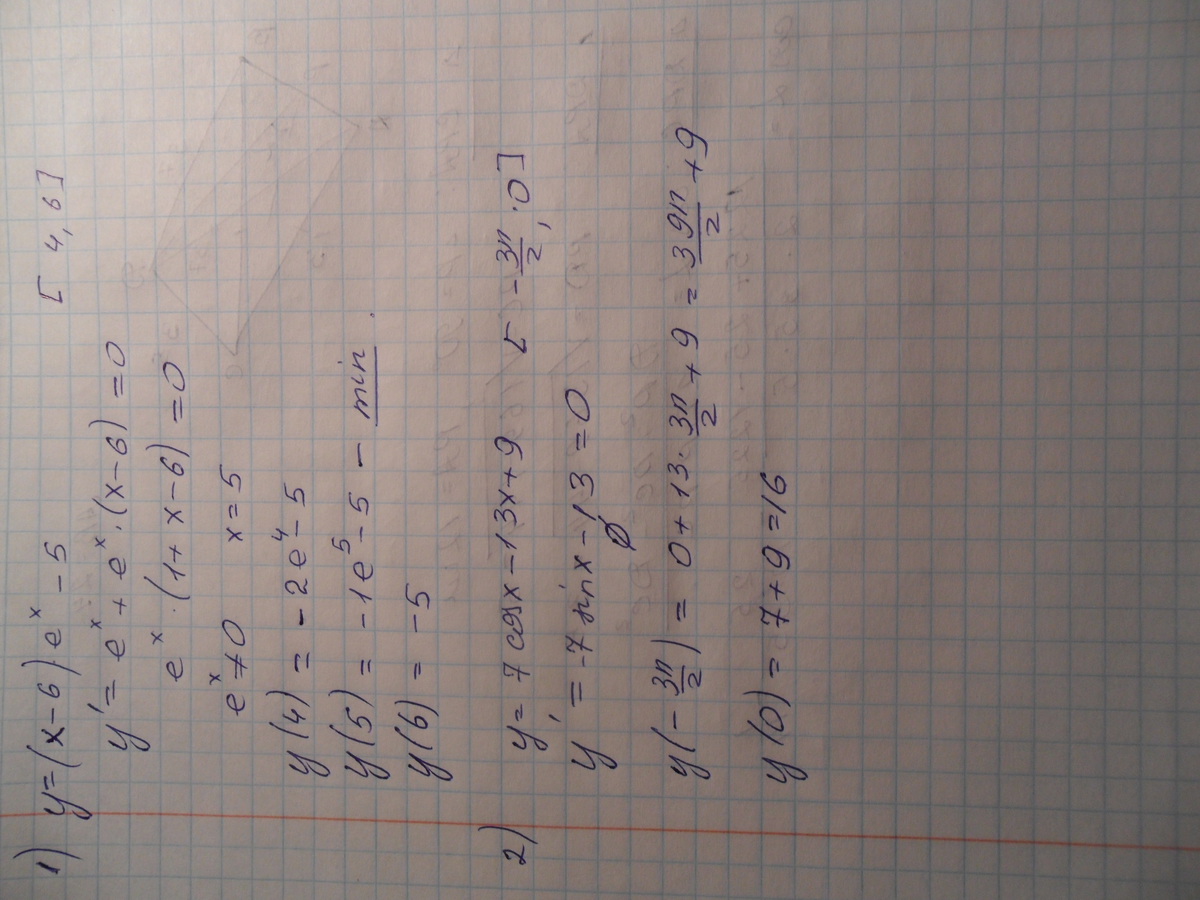 1) y=(x-6)e^x-5 [4, 6]
y'=e^x+e^x·(x-6)=0
e^x·(1+x-6)=0
e^x≠0 x=5
y(4)=-2e^4-5
y(5)=-1e^5-5 - min.
y(6)=-5
2) y=7cosx-13x+9 [-3π/2, 0]
y'=-7sinx-13=0
∅
y(-3π/2)=0+13·3π/2+9=39π/2+9
y(0)=7+9=16